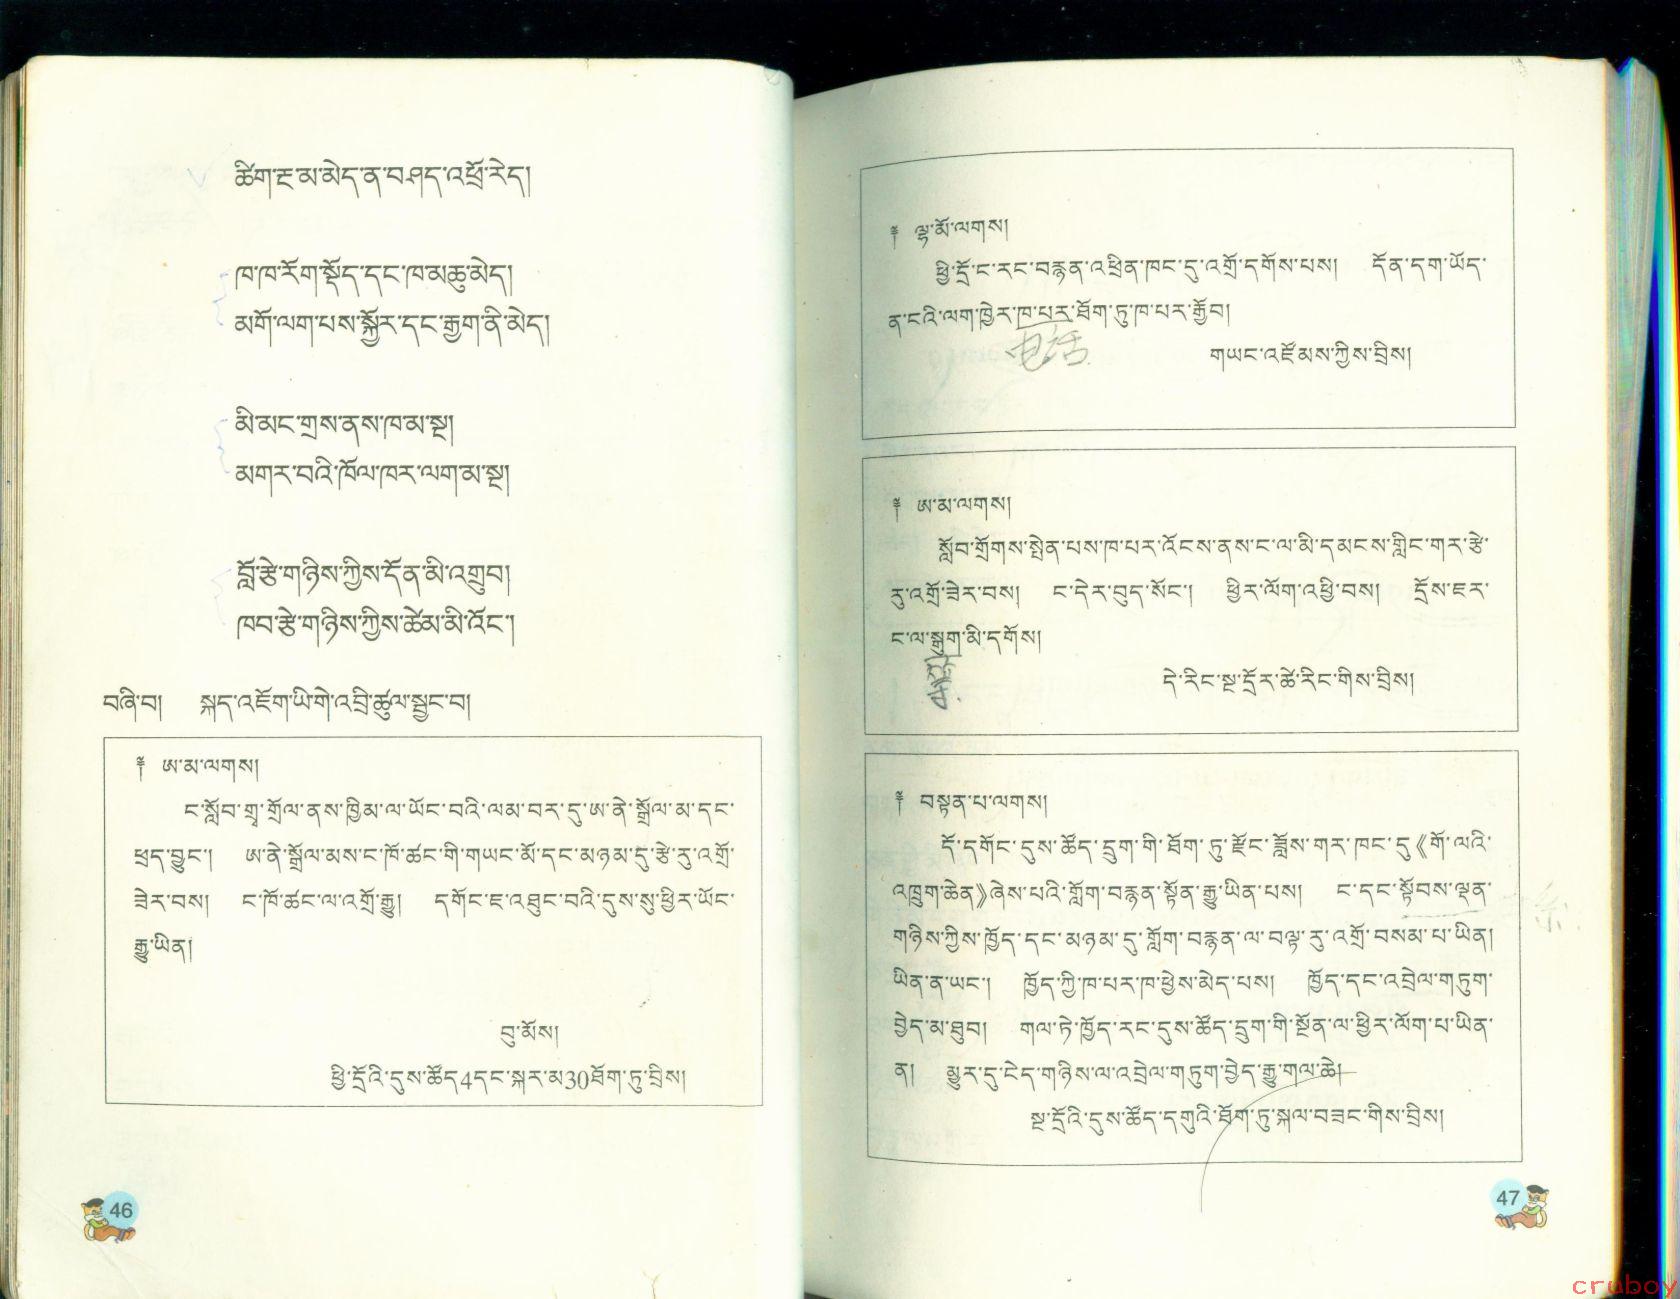 ཚིག་རྔ་མ་མེད་ན་བཤད་འཕྲོ་རེད།
ཁ་ཁ་རོག་སྡོད་དང་ཁ་མཆུ་མེད།
མགོ་ལག་པས་སྐྱོར་དང་རྒྱག་ནི་མེད།
མི་མང་གྲས་ནས་ཁ་མ་སྔ།
མགར་བའི་ཁོལ་ཁར་ལག་མ་སྔ།
བློ་རྩེ་གཉིས་ཀྱིས་དོན་མི་འགྲུབ།
ཁབ་རྩེ་གཉིས་ཀྱིས་ཚེམ་མི་འོང་།
བཞི་བ། སྐད་འཇོག་ཡི་གེ་འབྲི་ཚུལ་སྦྱང་བ།
༈ ཨ་མ་ལགས།
ང་སློབ་གྲྭ་གྲོལ་ནས་ཁྱིམ་ལ་ཡོང་བའི་ལམ་བར་དུ་ཨ་ནེ་སྒྲོལ་མ་དང་
ཕྲད་བྱུང་། ཨ་ནེ་སྒྲོལ་མས་ང་ཁོ་ཚང་གི་གཡང་མོ་དང་མཉམ་དུ་རྩེ་རུ་འགྲོ་
ཟེར་བས། ང་ཁོ་ཚང་ལ་འགྲོ་རྒྱུ། དགོང་ཇ་འཐུང་བའི་དུས་སུ་ཕྱིར་ཡོང་
རྒྱུ་ཡིན།
བུ་མོས།
ཕྱི་དྲོའི་དུས་ཚོད4དང་སྐར་མ30ཐོག་ཏུ་བྲིས།
46
༈ ལྷ་མོ་ལགས།
ཕྱི་དྲོ་ང་རང་བརྙན་འཕྲིན་ཁང་དུ་འགྲོ་དགོས་པས། དོན་དག་ཡོད་
ན་ངའི་ལག་ཁྱེར་ཁ་པར་ཐོག་ཏུ་ཁ་པར་རྒྱོབ།
电话
གཡང་འཛོམས་ཀྱིས་བྲིས།
༈ ཨ་མ་ལགས།
སློབ་གྲོགས་སྤེན་པས་ཁ་པར་འོངས་ནས་ང་ལ་མི་དམངས་གླིང་གར་རྩེ་
རུ་འགྲོ་ཟེར་བས། ང་དེར་བུད་སོང་། ཕྱིར་ལོག་འཕྱི་བས། དྲོས་ཇར་
ང་ལ་སྒུག་མི་དགོས།
དེ་རིང་སྔ་དྲོར་ཚེ་རིང་གིས་བྲིས།
༈ བསྟན་པ་ལགས།
དོ་དགོང་དུས་ཚོད་དྲུག་གི་ཐོག་ཏུ་རྫོང་ཟློས་གར་ཁང་དུ《གོ་ལའི་
འཁྲུག་ཆེན》ཞེས་པའི་གློག་བརྙན་སྟོན་རྒྱུ་ཡིན་པས། ང་དང་སྟོབས་ལྡན་
གཉིས་ཀྱིས་ཁྱོད་དང་མཉམ་དུ་གློག་བརྙན་ལ་བལྟ་རུ་འགྲོ་བསམ་པ་ཡིན།
ཡིན་ན་ཡང་། ཁྱོད་ཀྱི་ཁ་པར་ཁ་ཕྱེས་མེད་པས། ཁྱོད་དང་འབྲེལ་གཏུག་
བྱེད་མ་ཐུབ། གལ་ཏེ་ཁྱོད་རང་དུས་ཚོད་དྲུག་གི་སྔོན་ལ་ཕྱིར་ལོག་པ་ཡིན་
ན། མྱུར་དུ་ངེད་གཉིས་ལ་འབྲེལ་གཏུག་བྱེད་རྒྱུ་གལ་ཆེ།
སྔ་དྲོའི་དུས་ཚོད་དགུའི་ཐོག་ཏུ་སྐལ་བཟང་གིས་བྲིས།
47
cruboy